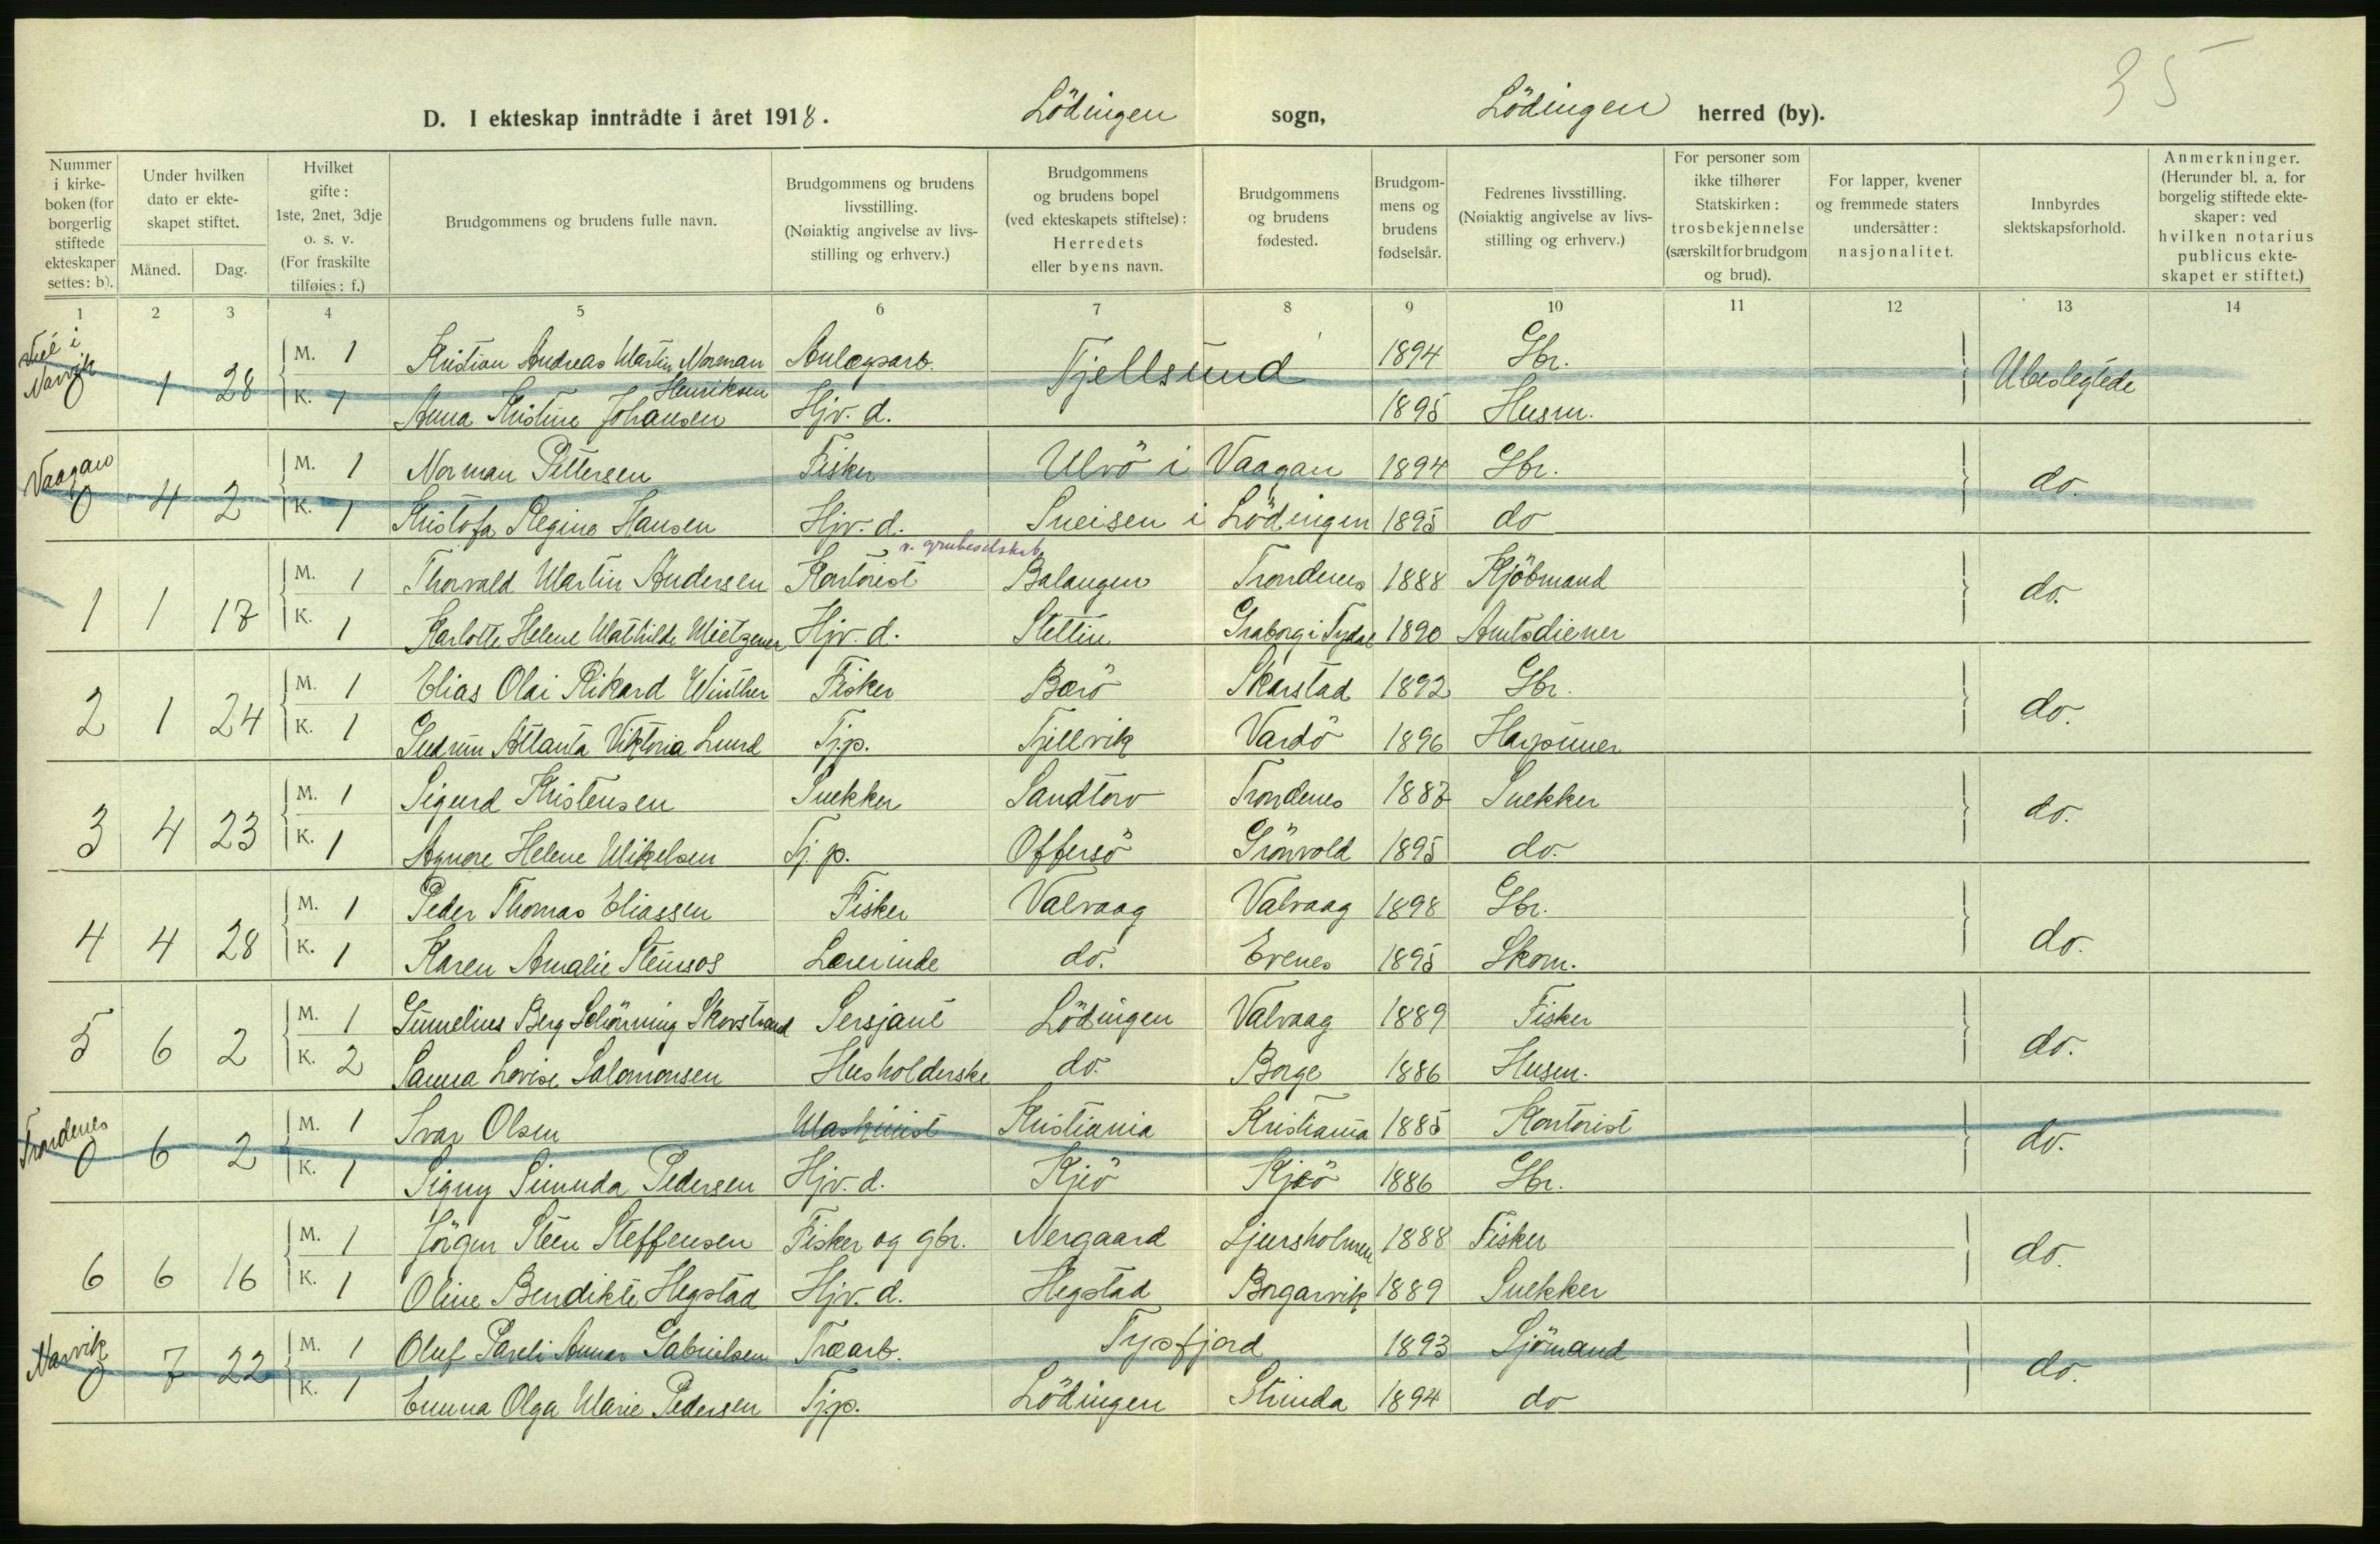 35
D. I ekteskap inntrådte i året 1918. Lödingen sogn, Lödingen herred (by).
Nummer i kirkeboken (for borgerlig stiftede ekteskaper settes: b).
Under hvilken dato er ekteskapet stiftet.
Måned. Dag.
Hvilket gifte: 1ste, 2net, 3dje o. s. v. (For fraskilte tilføies: f.)
Brudgommens og brudens fulle navn.
Brudgommens og brudens livsstilling. (Nøiaktig angivelse av livsstilling og erhverv.)
Brudgommens og brudens bopel (ved ekteskapets stiftelse): Herredets eller byens navn.
Brudgommens og brudens fødested.
Brudgommens og brudens fødselsår.
Fedrenes livsstilling. (Nøiaktig angivelse av livsstilling og erhverv.)
For personer som ikke tilhører Statskirken: trosbekjennelse (særskilt for brudgom og brud).
For lapper, kvener og fremmede staters undersåtter: nasjonalitet.
Innbyrdes slektskapsforhold.
Anmerkninger. (Herunder bl. a. for borgelig stiftede ekteskaper: ved hvilken notarius publicus ekteskapet er stiftet.)
1 2 3 4 5 6 7 8 9 10 11 12 13 14
Viet i Narvik
M. 1 Kristian Andreas Martin Norman Henriksen Anlægsarb. Fjellsund 1894 Gbr.
0 1 28 K. 1 Anna Kristine Johansen Hjv. d. 1895 Husm. Ubeslegtede
Vaagan
M. 1 Norman Pettersen Fisker Ulvö i Vaagan 1894 Gbr.
0 4 2 K. 1 Kristofa Regine Hansen Hjv. d. Sneisen i Lödingen 1895 do do.
v. grubeselskab
M. 1 Thorvald Martin Andersen Kontorist Balangen Trondenes 1888 Kjöbmand
1 1 17 K. 1 Karlotte Helene Mathilde Mietzener Hjv. d. Stettin Graborg i Tydsl 1890 Amtsdiener do.
M. 1 Elias Olai Rikard Winther Fisker Barö Skarstad 1892 Gbr.
2 1 24 K. 1 Gudrun Atlanta Viktoria Lund Tj.p. Fjellvik Vardö 1896 Harpuner do.
M. 1 Sigurd Kristensen Snekker Sandtorv Trondenes 1887 Snekker
3 4 23 K. 1 Agnore Helene Mikelsen Tj. p. Offersö Grönvold 1895 do. do.
M. 1 Peder Thomas Eliassen Fisker Valvaag Valvaag 1898 Gbr.
4 4 28 K. 1 Karen Amalie Steinsos Lærerinde do. Evenes 1895 Skom. do.
M. 1 Gunnelius Berg Schönning Skovstrand Sersjant Lödingen Valvaag 1889 Fisker
5 6 2 K. 2 Sanna Lovise Salomonsen Husholderske do. Borge 1886 Husm. do.
Trondenes
M. 1 Ivar Olsen Maskinist Kristiania Kristiania 1885 Kontorist
0 6 2 K. 1 Signy Simunda Pedersen Hjv. d. Kjeö Kjeö 1886 Gbr. do.
M. 1 Jörgen Steen Steffensen Fisker og gbr. Nergaard Sjursholmen 1888 Fisker
6 6 16 K. 1 Oline Bendikte Hegstad Hjv. d. Hegstad Bogarvik 1889 Snekker do.
Narvik
M. 1 Oluf Pareli Annar Gabrielsen Træarb. Tysfjord 1893 Sjömand
0 7 22 K. 1 Emma Olga Marie Pedersen Tjp. Lödingen Strinda 1894 do do.